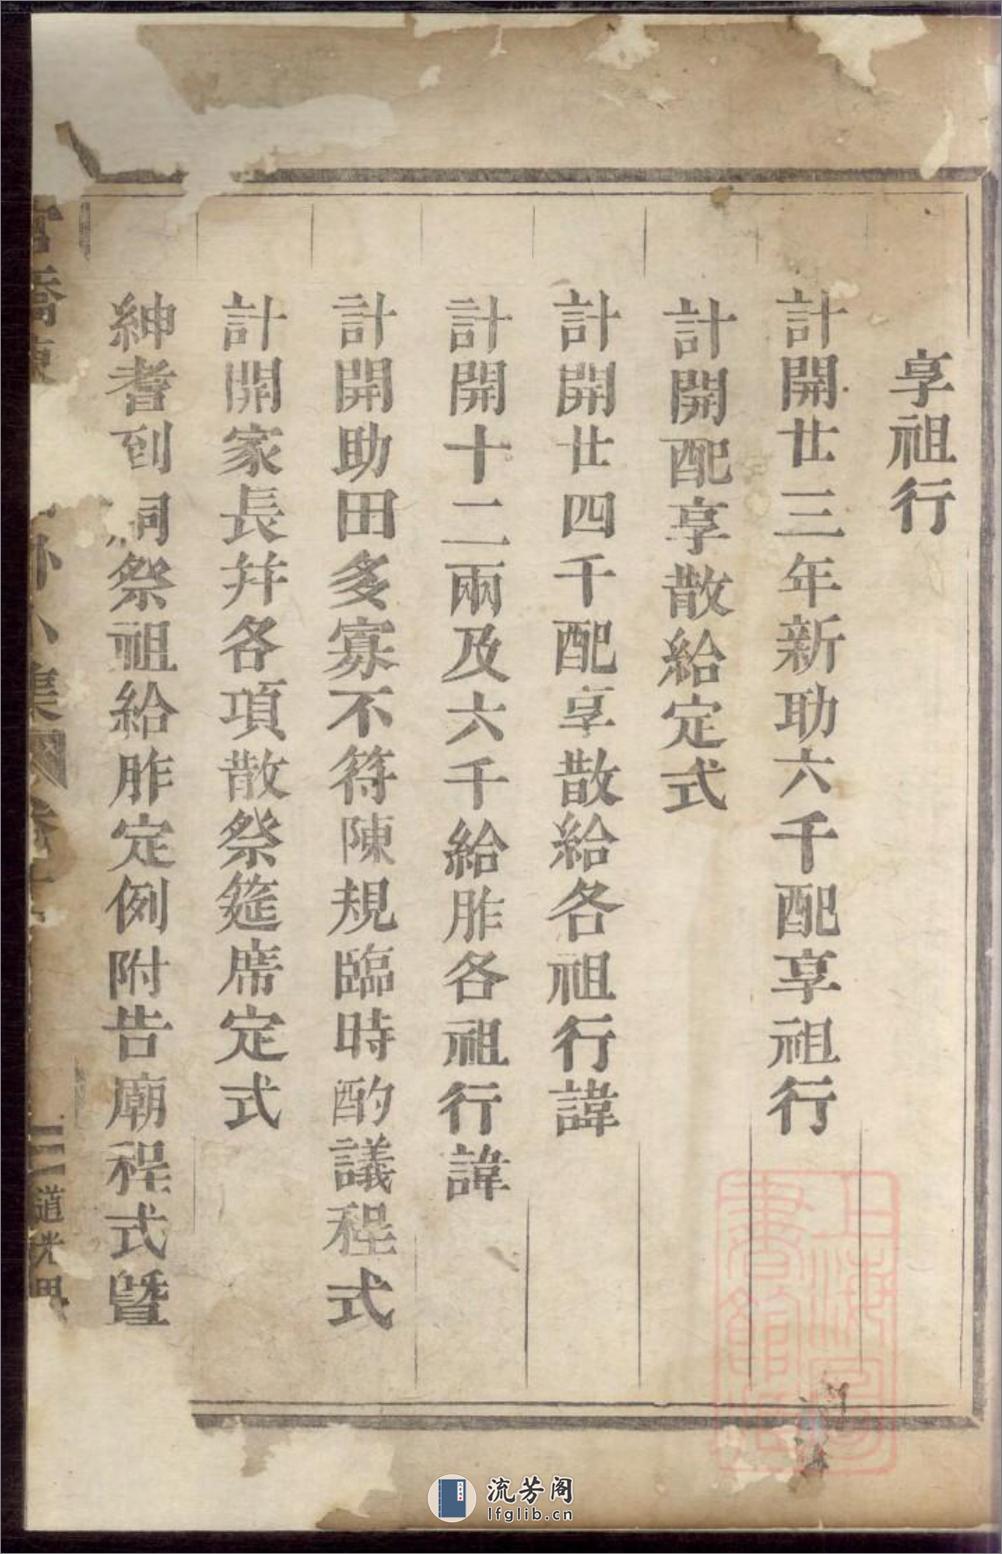 享祖行
計開廿三年新助六千配享祖行
計開配享散給定式
計開廿四千配享散給各祖行諱
計開十二兩及六千給胙各祖行諱
計開助田多寡不符陳規臨時酌議程式
計開家長并各項散祭筵席定式
紳耆到祠祭祖給胙定例附告廟程式暨
道光
上海圖書館藏
流芳阁
lfglib.cn